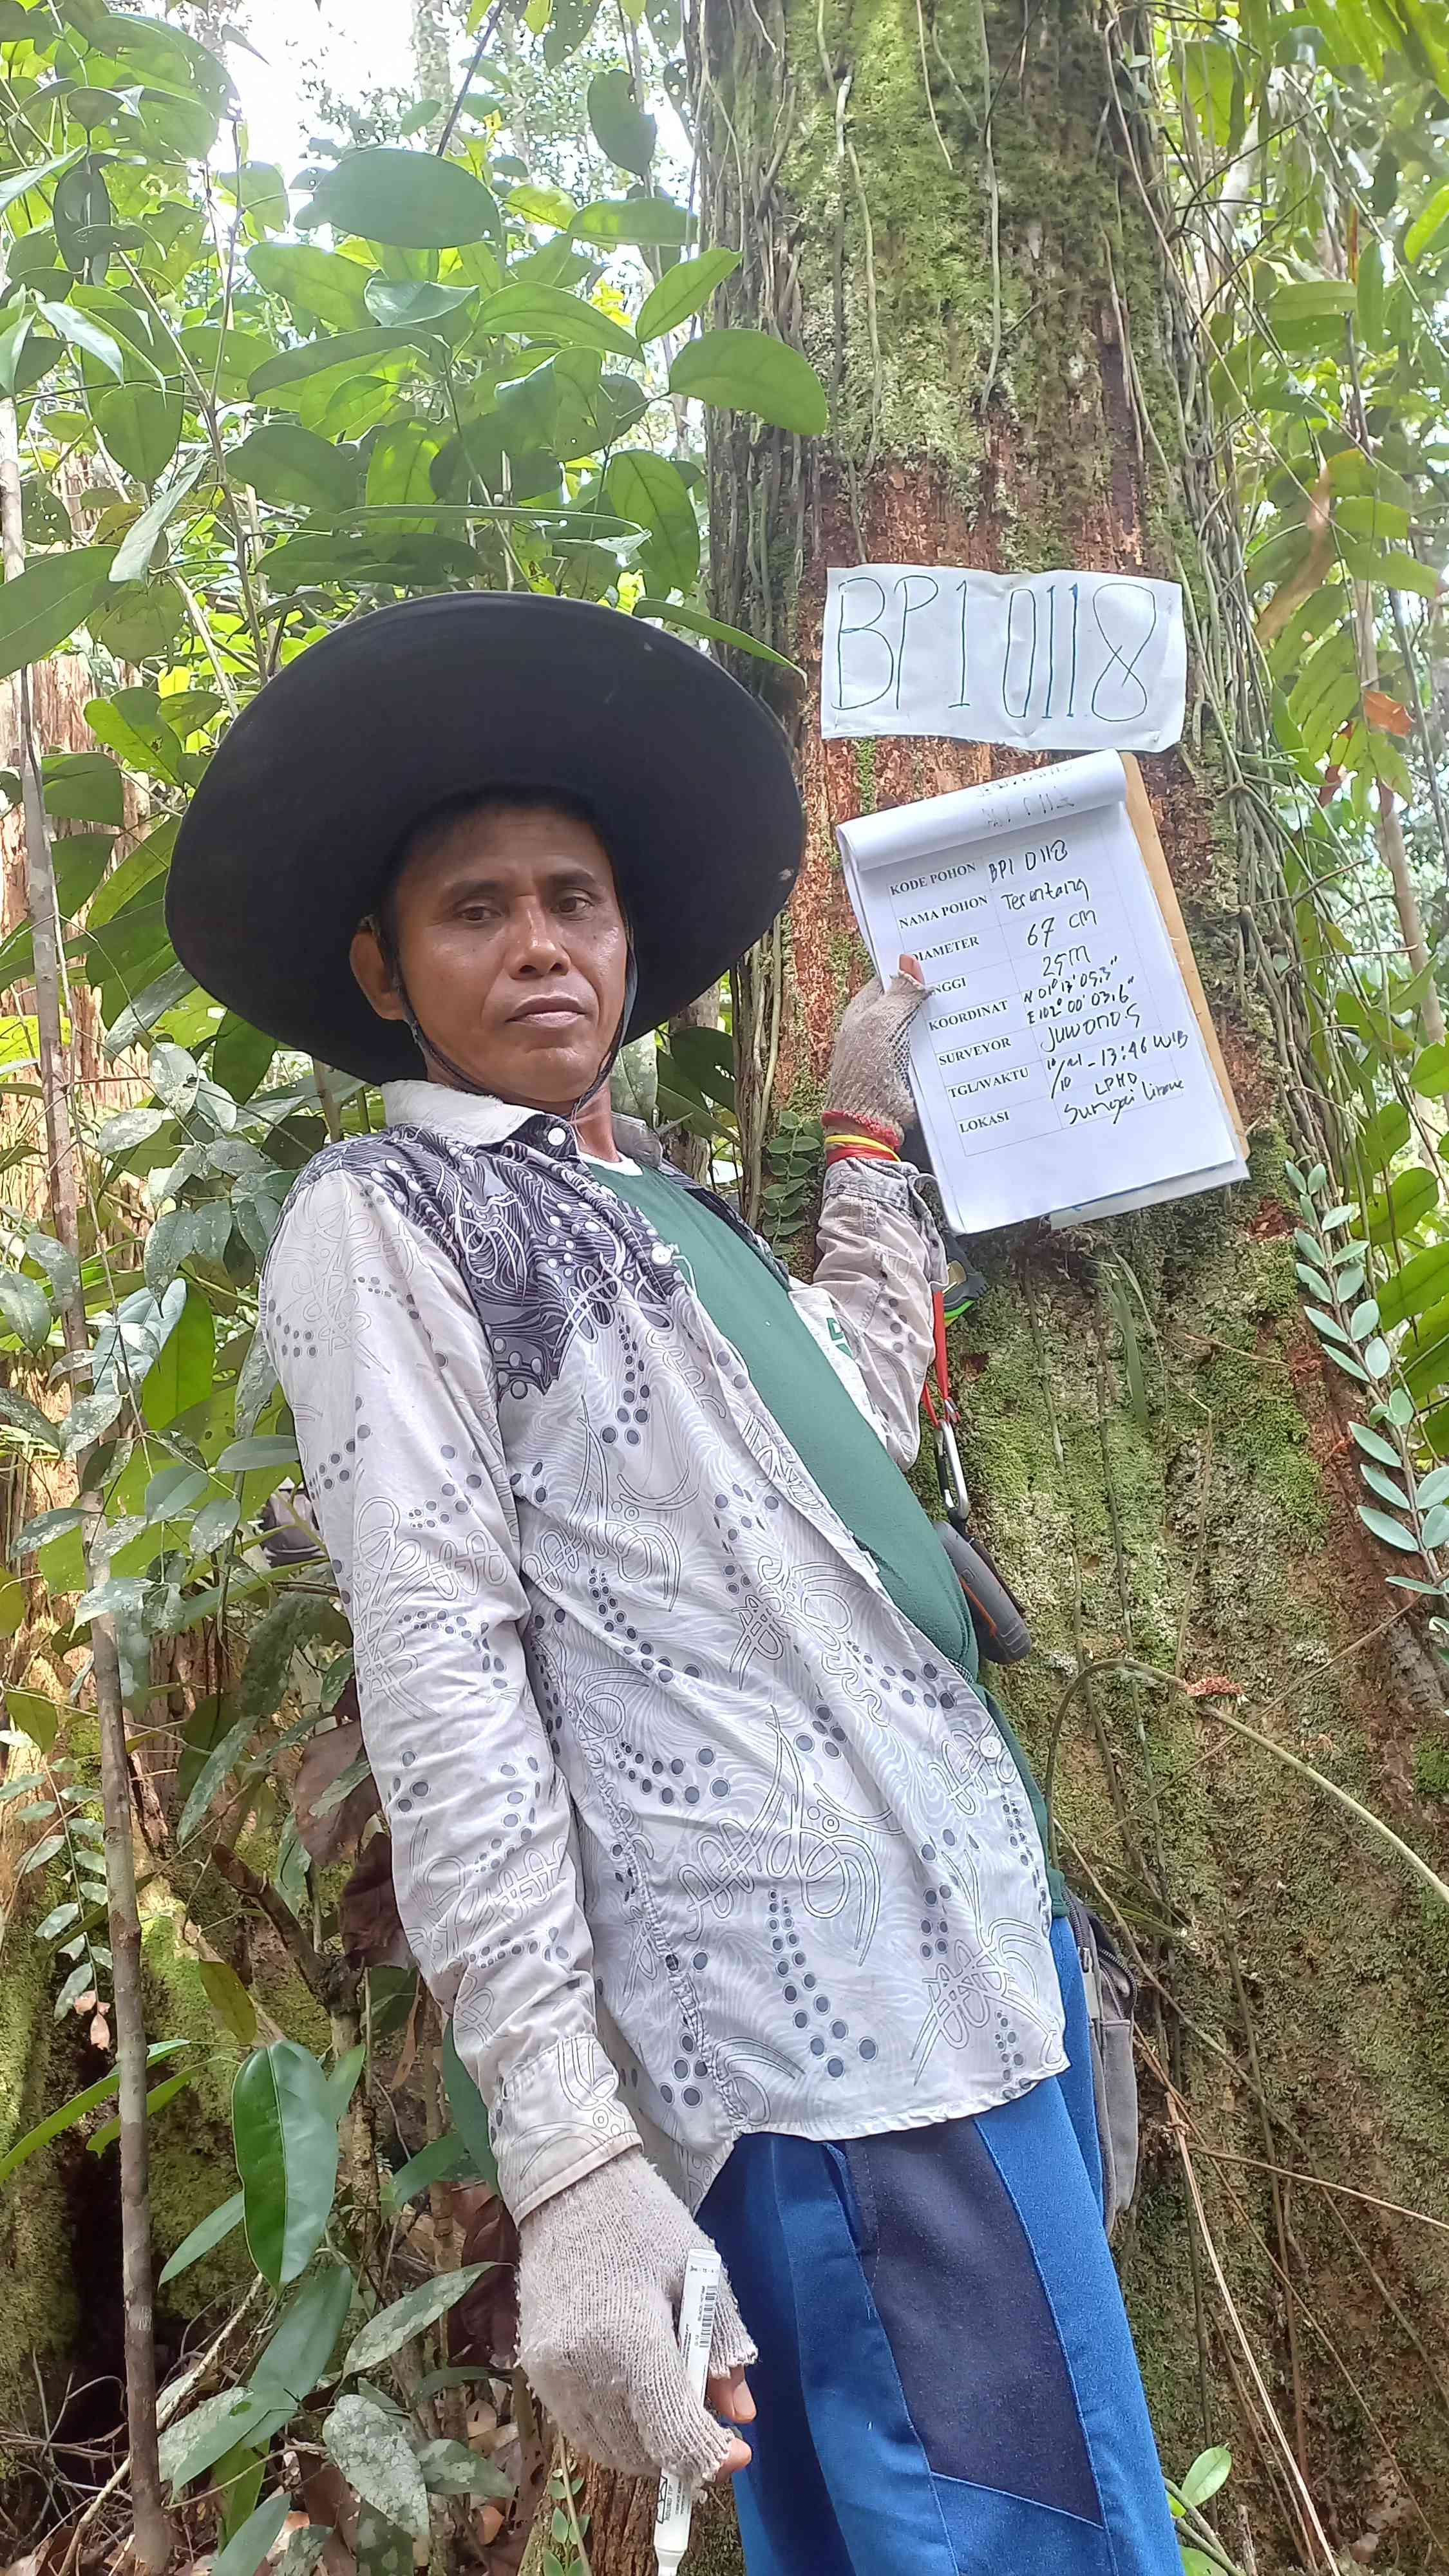 BPI 0118
KODE POHON BPI 0118
NAMA POHON Terentang
DIAMETER 67 cm
NGGI 25M
KOORDINAT N 01° 13' 05.3"
E 102° 00' 03.6"
SURVEYOR JUWONO S
TGL/WAKTU 13:46 WIB
LOKASI LPHD
Sungai